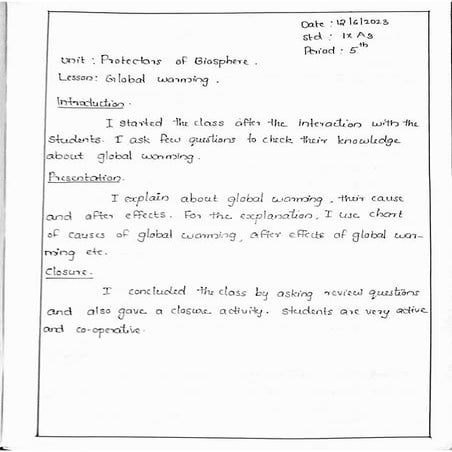 Date : 12/6/2023
Std : IX A3
Period : 5th
Unit : Protectors of Biosphere .
Lesson: Global warming .
Introduction .
I started the class after the interaction with the
students. I ask few questions to check their knowledge
about global warming .
Presentation.
I explain about global warming , their cause
and after effects . For the explanation, I use chart
of causes of global warming, after effects of global war-
ming etc.
Closure.
I concluded the class by asking review questions
and also gave a closure activity. Students are very active
and co-operative.